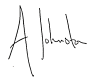 A Johnston